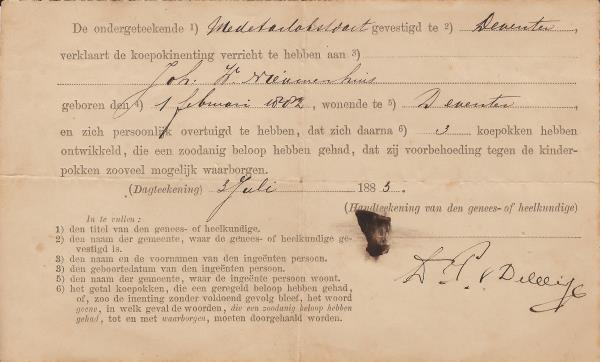 De ondergeteekende 1) gevestigd te 2) Deventer,
verklaart de koepokinenting verricht te hebben aan 3)
Joh. W. Nieuwenhuis
geboren den 4) 1 februari 1882, wonende te 5) Deventer
en zich persoonlijk overtuigd te hebben, dat zich daarna 6) 3 koepokken hebben
ontwikkeld, die een zoodanig beloop hebben gehad, dat zij voorbehoeding tegen de kinder-
pokken zooveel mogelijk waarborgen.
(Dagteekening) 3 Juli 1883.
(Handteekening van den genees- of heelkundige)
In te vullen:
1) den titel van den genees- of heelkundige.
2) den naam der gemeente, waar de genees- of heelkundige ge-
vestigd is.
3) den naam en de voornamen van den ingeënten persoon.
3) den geboortedatum van den ingeënten persoon.
5) den naam der gemeente, waar de ingeënte persoon woont.
6) het getal koepokken, die een geregeld beloop hebben gehad,
of, zoo de inenting zonder voldoend gevolg bleef, het woord
geene, in welk geval de woorden, die een zoodanig beloop hebben
gehad, tot en met waarborgen, moeten doorgehaald worden.